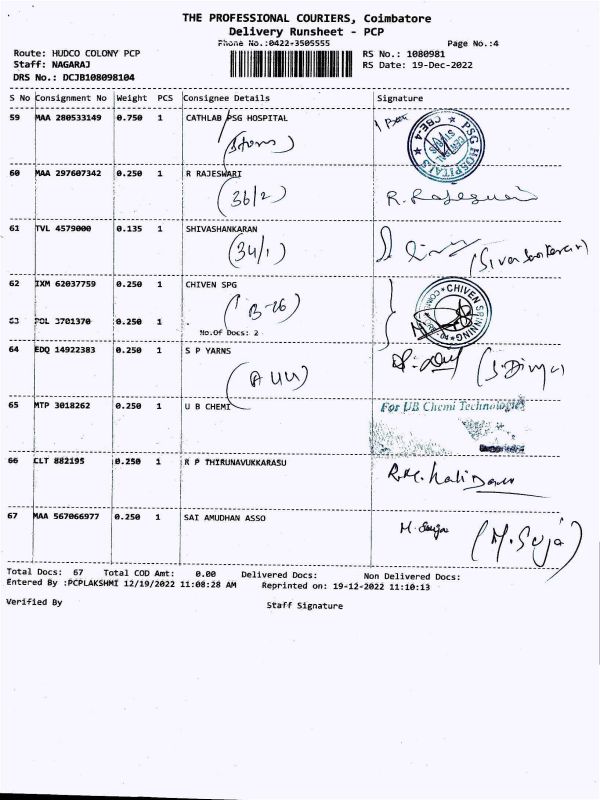 THE PROFESSIONAL COURIERS, Coimbatore
Delivery Runsheet - PCP
Phone No.:0422-3505555
Page No.:4
Route: HUDCO COLONY PCP
RS No.: 1080981
Staff: NAGARAJ
RS Date: 19-Dec-2022
DRS No.: DCJB108098104
S No Consignment No Weight PCS Consignee Details Signature
59 MAA 280533149 0.750 1 CATHLAB PSG HOSPITAL
PSG HOSPITALS
CBE.4
60 MAA 297607342 0.250 1 R RAJESWARI
(36/2)
61 TVL 4579000 0.135 1 SHIVASHANKARAN
(34/1)
62 IXM 62037759 0.250 1 CHIVEN SPG
CHIVEN SPINNING
B-26
63 POL 3701370 0.250 1
No.Of Docs: 2
64 EDQ 14922383 0.250 1 S P YARNS
(A 44) (S.Divya)
65 MTP 3018262 0.250 1 U B CHEMI
For UB Chemi Technologies
66 CLT 882195 0.250 1 R P THIRUNAVUKKARASU
67 MAA 567066977 0.250 1 SAI AMUDHAN ASSO
M. Suja (M.Suja)
Total Docs: 67 Total COD Amt: 0.00 Delivered Docs: Non Delivered Docs:
Entered By :PCPLAKSHMI 12/19/2022 11:08:28 AM Reprinted on: 19-12-2022 11:10:13
Verified By
Staff Signature